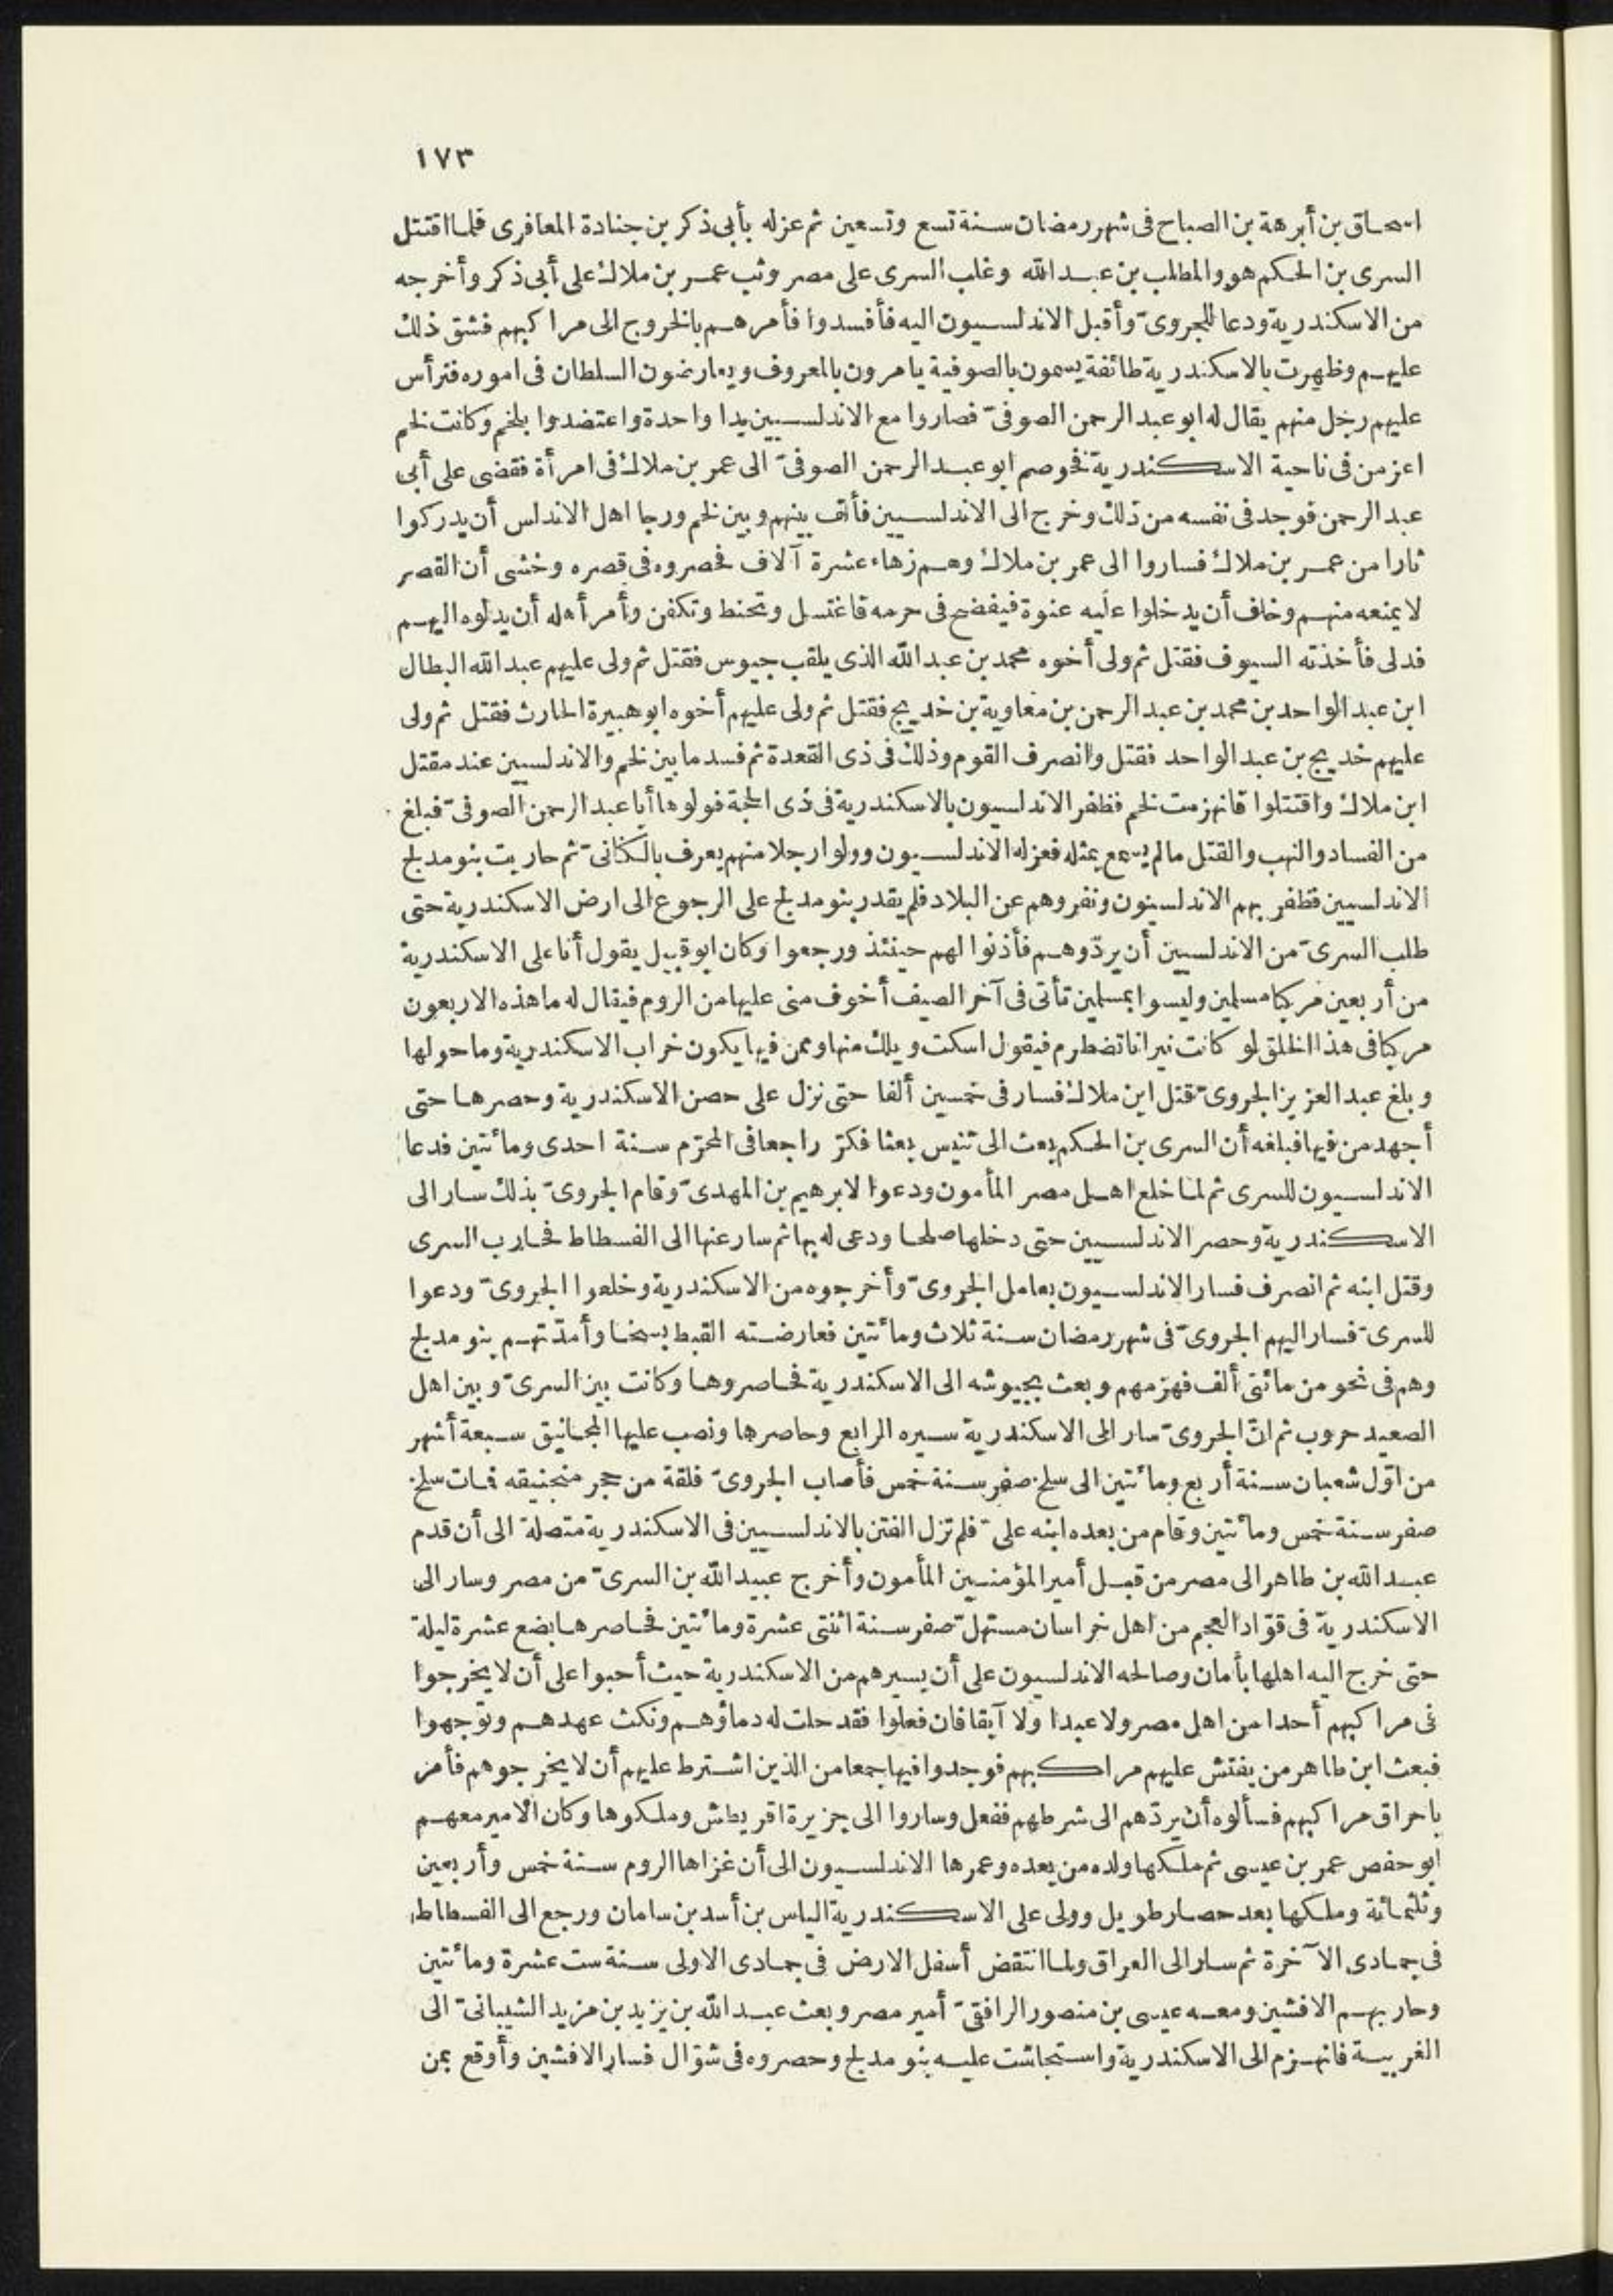 ١٧٣
اسحاق بن أبرهة بن الصباح فى شهر رمضان سنة تسع وتسعين ثم عزله بأبى ذكر بن جنادة المعافرى فلما اقتتل
السرى بن الحكم هو والمطلب بن عبد الله وغلب السرى على مصر وثب عمر بن ملاك على أبى ذكر وأخرجه
من الاسكندرية ودعا للجروىّ وأقبل الاندلسيون اليه فأفسدوا فأمرهم بالخروج الى مراكبهم فشق ذلك
عليهم وظهرت بالاسكندرية طائفة يسمون بالصوفية يامرون بالمعروف ويعارضون السلطان فى اموره فترأس
عليهم رجل منهم يقال له ابو عبد الرحمن الصوفىّ فصاروا مع الاندلسيين يدا واحدة واعتضدوا بلخم وكانت لخم
اعز من فى ناحية الاسكندرية فخوصم ابو عبد الرحمن الصوفىّ الى عمر بن ملاك فى امرأة فقضى على أبى
عبد الرحمن فوجد فى نفسه من ذلك وخرج الى الاندلسيين فألف بينهم وبين لخم ورجا اهل الاندلس أن يدركوا
ثارا من عمر بن ملاك فساروا الى عمر بن ملاك وهم زهاء عشرة آلاف فحصروه فى قصره وخشى أن القصر
لا يمنعه منهم وخاف أن يدخلوا عليه عنوة فيفضح فى حرمه فاغتسل وتحنط وتكفن وأمر أهله أن يدلوه اليهم
فدلى فأخذته السيوف فقتل ثم ولى أخوه محمد بن عبد الله الذى يلقب جيوس فقتل ثم ولى عليهم عبد الله البطال
ابن عبد الواحد بن محمد بن عبد الرحمن بن معاوية بن خديج فقتل ثم ولى عليهم أخوه ابو هبيرة الحارث فقتل ثم ولى
عليهم خديج بن عبد الواحد فقتل وانصرف القوم وذلك فى ذى القعدة ثم فسد ما بين لخم والاندلسيين عند مقتل
ابن ملاك واقتتلوا فانهزمت لخم فظفر الاندلسيون بالاسكندرية فى ذى الحجة فولوها أبا عبد الرحمن الصوفىّ فبلغ
من الفساد والنهب والقتل ما لم يسمع بمثله فعزله الاندلسيون وولوا رجلا منهم يعرف بالكنانىّ ثم حاربت بنو مدلج
الاندلسيين فظفر بهم الاندلسيون ونفروهم عن البلاد فلم يقدر بنو مدلج على الرجوع الى ارض الاسكندرية حتى
طلب السرىّ من الاندلسيين أن يردّوهم فأذنوا لهم حينئذ ورجعوا وكان ابو قبيل يقول أنا على الاسكندرية
من أربعين مركبا مسلمين وليسوا بمسلمين تأتى فى آخر الصيف أخوف منى عليها من الروم فيقال له ما هذه الاربعون
مركبا فى هذا الخلق لو كانت نيرانا تضطرم فيقول اسكت ويلك منها وممن فيها يكون خراب الاسكندرية وما حولها
وبلغ عبد العزيز الجروىّ قتل ابن ملاك فسار فى خمسين ألفا حتى نزل على حصن الاسكندرية وحصرها حتى
أجهد من فيها فبلغه أن السرى بن الحكم بعث الى تنيس بعثا فكرّ راجعا فى المحرّم سنة احدى ومائتين فدعا
الاندلسيون للسرى ثم لما خلع اهل مصر المأمون ودعوا لابرهيم بن المهدىّ وقام الجروىّ بذلك سار الى
الاسكندرية وحصر الاندلسيين حتى دخلها صلحا ودعى له بها ثم سار عنها الى الفسطاط فحارب السرى
وقتل ابنه ثم انصرف فسار الاندلسيون بعامل الجروىّ وأخرجوه من الاسكندرية وخلعوا الجروىّ ودعوا
للسرىّ فسار اليهم الجروىّ فى شهر رمضان سنة ثلاث ومائتين فعارضته القبط بسخا وأمدّتهم بنو مدلج
وهم فى نحو من مائتى ألف فهزمهم وبعث بجيوشه الى الاسكندرية فحاصروها وكانت بين السرىّ وبين اهل
الصعيد حروب ثم انّ الجروىّ سار الى الاسكندرية سيره الرابع وحاصرها ونصب عليها المجانيق سبعة أشهر
من اوّل شعبان سنة أربع ومائتين الى سلخ صفر سنة خمس فأصاب الجروىّ فلقة من حجر منجنيقه فمات سلخ
صفر سنة خمس ومائتين وقام من بعده ابنه علىّ فلم تزل الفتن بالاندلسيين فى الاسكندرية متصلة الى أن قدم
عبد الله بن طاهر الى مصر من قبل أمير المؤمنين المأمون وأخرج عبيد الله بن السرىّ من مصر وسار الى
الاسكندرية فى قوّاد العجم من اهل خراسان مستهلّ صفر سنة اثنتى عشرة ومائتين فحاصرها بضع عشرة ليلة
حتى خرج اليه اهلها بأمان وصالحه الاندلسيون على أن يسيرهم من الاسكندرية حيث أحبوا على أن لا يخرجوا
فى مراكبهم أحدا من اهل مصر ولا عبدا ولا آبقا فان فعلوا فقد حلت له دماؤهم ونكث عهدهم وتوجهوا
فبعث ابن طاهر من يفتش عليهم مراكبهم فوجدوا فيها جمعا من الذين اشترط عليهم أن لا يخرجوهم فأمر
باحراق مراكبهم فسألوه أن يردّهم الى شرطهم ففعل وساروا الى جزيرة اقريطش وملكوها وكان الامير معهم
ابو حفص عمر بن عيسى ثم ملكها ولده من بعده وعمرها الاندلسيون الى أن غزاها الروم سنة خمس وأربعين
وثلثمائة وملكها بعد حصار طويل وولى على الاسكندرية الياس بن أسد بن سامان ورجع الى الفسطاط
فى جمادى الآخرة ثم سار الى العراق ولما انتقض أسفل الارض فى جمادى الاولى سنة ست عشرة ومائتين
وحاربهم الافشين ومعه عيسى بن منصور الرافقىّ أمير مصر وبعث عبد الله بن يزيد بن مزيد الشيبانىّ الى
الغربية فانهزم الى الاسكندرية واستجاشت عليه بنو مدلج وحصروه فى شوّال فسار الافشين وأوقع بمن